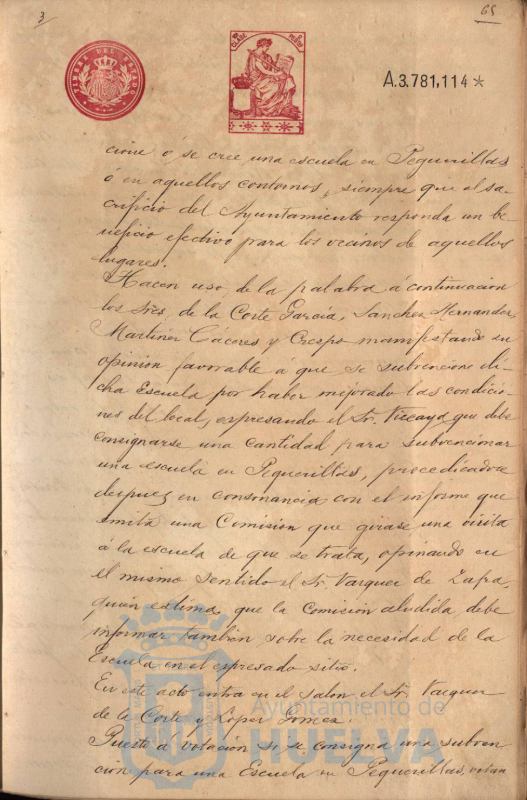 3
65
TIMBRE DEL ESTADO
A.3.781,114*
cione ó se cree una escuela en Peguerillas
ó en aquellos contornos, siempre que el sa-
crificio del Ayuntamiento responda un be-
neficio efectivo para los vecinos de aquellos
lugares.
Hacen uso de la palabra á continuacion
los Sres. de la Corte García, Sanchez Hernandez,
Martinez Cáceres y Crespo manifestando su
opinion favorable á que se subvencione di-
cha Escuela por haber mejorado las condicio-
nes del local, expresando el Sr. Vizcaya que debe
consignarse una cantidad para subvencionar
una escuela en Peguerillas, procediendose
despues en consonancia con el informe que
emita una Comision que girase una visita
á la escuela de que se trata, opinando en
el mismo sentido el Sr. Vazquez de Zafra,
quien estima que la comision aludida debe
informar tambien sobre la necesidad de la
Escuela en el expresado sitio.
En este acto entra en el salon el Sr. Vazquez
de la Corte y Lopez Gomez.
Puesto á votacion si se consigna una subven
cion para una Escuela en Peguerillas, votan
Ayuntamiento de
HUELVA